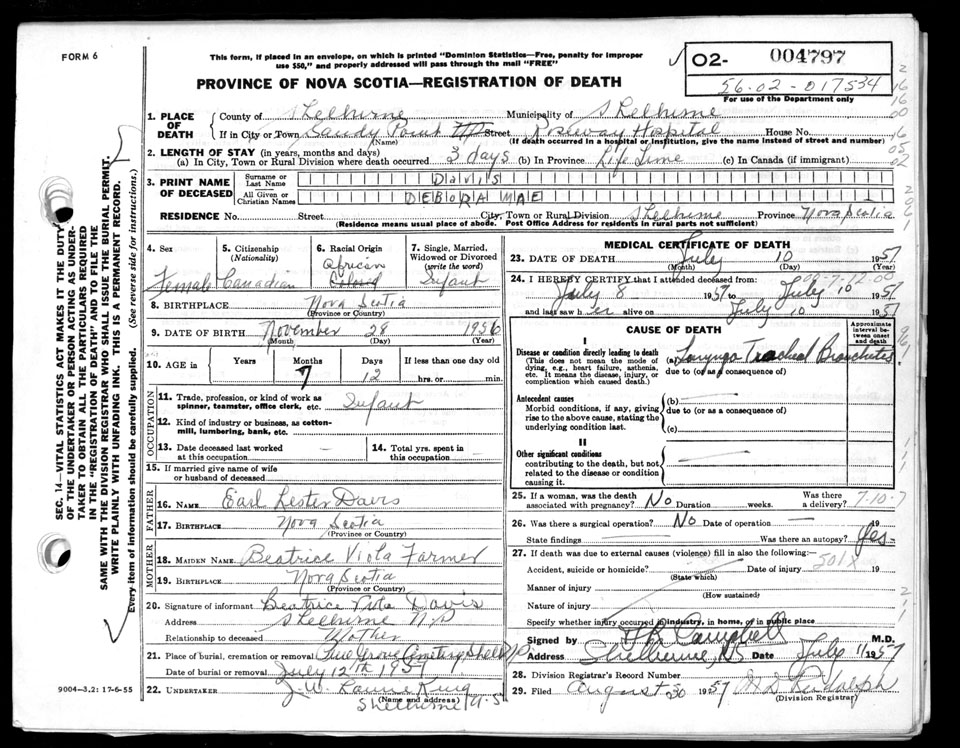 FORM 6
This form, if placed in an envelope, on which is printed "Dominion Statistics—Free, penalty for improper use $50," and properly addressed will pass through the mail "FREE"
PROVINCE OF NOVA SCOTIA—REGISTRATION OF DEATH
02- 004797
56-02-017534
For use of the Department only
1. PLACE OF DEATH
County of Shelburne Municipality of Shelburne
If in City or Town Sandy Point Street Roseway Hospital House No.
(Name) (If death occurred in a hospital or institution, give the name instead of street and number)
2. LENGTH OF STAY (in years, months and days)
(a) In City, Town or Rural Division where death occurred 3 days (b) In Province Life Time (c) In Canada (if immigrant)
3. PRINT NAME OF DECEASED
Surname or Last Name Davis
All Given or Christian Names DEBORA MAE
RESIDENCE No. Street City, Town or Rural Division Shelburne Province Nova Scotia
(Residence means usual place of abode. Post Office Address for residents in rural parts not sufficient)
4. Sex Female
5. Citizenship (Nationality) Canadian
6. Racial Origin African Colored
7. Single, Married, Widowed or Divorced (write the word) Infant
8. BIRTHPLACE Nova Scotia
(Province or Country)
9. DATE OF BIRTH November 28 1956
(Month) (Day) (Year)
10. AGE in Years Months 7 Days 12 If less than one day old hrs. or min.
OCCUPATION
11. Trade, profession, or kind of work as spinner, teamster, office clerk, etc. Infant
12. Kind of industry or business, as cotton-mill, lumbering, bank, etc.
13. Date deceased last worked at this occupation
14. Total yrs. spent in this occupation
15. If married give name of wife or husband of deceased
FATHER
16. NAME Earl Lester Davis
17. BIRTHPLACE Nova Scotia
(Province or Country)
MOTHER
18. MAIDEN NAME Beatrice Viola Farmer
19. BIRTHPLACE Nova Scotia
(Province or Country)
20. Signature of informant Beatrice Davis
Address Shelburne N.S
Relationship to deceased Mother
21. Place of burial, cremation or removal Pine Grove Cemetery Shel N.S
Date of burial or removal July 12th 1957
22. UNDERTAKER King
(Name and address)
Shelburne N.S
9004-3.2: 17-6-55
MEDICAL CERTIFICATE OF DEATH
23. DATE OF DEATH July 10 1957
(Month) (Day) (Year)
24. I HEREBY CERTIFY that I attended deceased from:
July 8 1957 to July 10 1957
and last saw her alive on July 10 1957
CAUSE OF DEATH
Approximate interval between onset and death
I
Disease or condition directly leading to death (a) Laryngo Tracheal Bronchitis
(This does not mean the mode of dying, e.g., heart failure, asthenia, etc. It means the disease, injury, or complication which caused death.)
due to (or as a consequence of)
Antecedent causes
Morbid conditions, if any, giving rise to the above cause, stating the underlying condition last.
(b)
due to (or as a consequence of)
(c)
II
Other significant conditions
contributing to the death, but not related to the disease or condition causing it.
25. If a woman, was the death associated with pregnancy? No Duration weeks. Was there a delivery? 7-10-7
26. Was there a surgical operation? No Date of operation — 19
State findings Was there an autopsy? Yes
27. If death was due to external causes (violence) fill in also the following:—
Accident, suicide or homicide? Date of injury 501X 19
(State which)
Manner of injury
(How sustained)
Nature of injury
Specify whether injury occurred in industry, in home, or in public place
Signed by Campbell M.D.
Address Shelburne, N.S. Date July 11 1957
28. Division Registrar's Record Number
29. Filed August 30 1957
(Division Registrar)
SEC. 14—VITAL STATISTICS ACT MAKES IT THE DUTY OF THE UNDERTAKER OR PERSON ACTING AS UNDERTAKER TO OBTAIN ALL THE PARTICULARS REQUIRED IN THE "REGISTRATION OF DEATH" AND TO FILE THE SAME WITH THE DIVISION REGISTRAR WHO SHALL ISSUE THE BURIAL PERMIT.
WRITE PLAINLY WITH UNFADING INK. THIS IS A PERMANENT RECORD.
Every item of information should be carefully supplied. (See reverse side for instructions.)